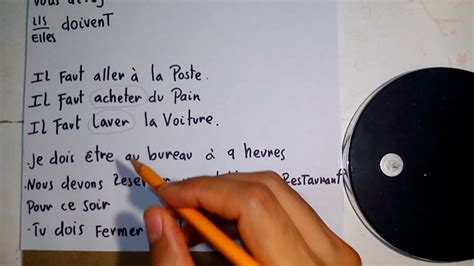 Ils
Elles doivent
Il Faut aller à la Poste.
Il Faut acheter du Pain
Il Faut Laver la Voiture.
. Je dois être au bureau à 9 heures
. Nous devons Restaurant
Pour ce soir
- Tu dois Fermer